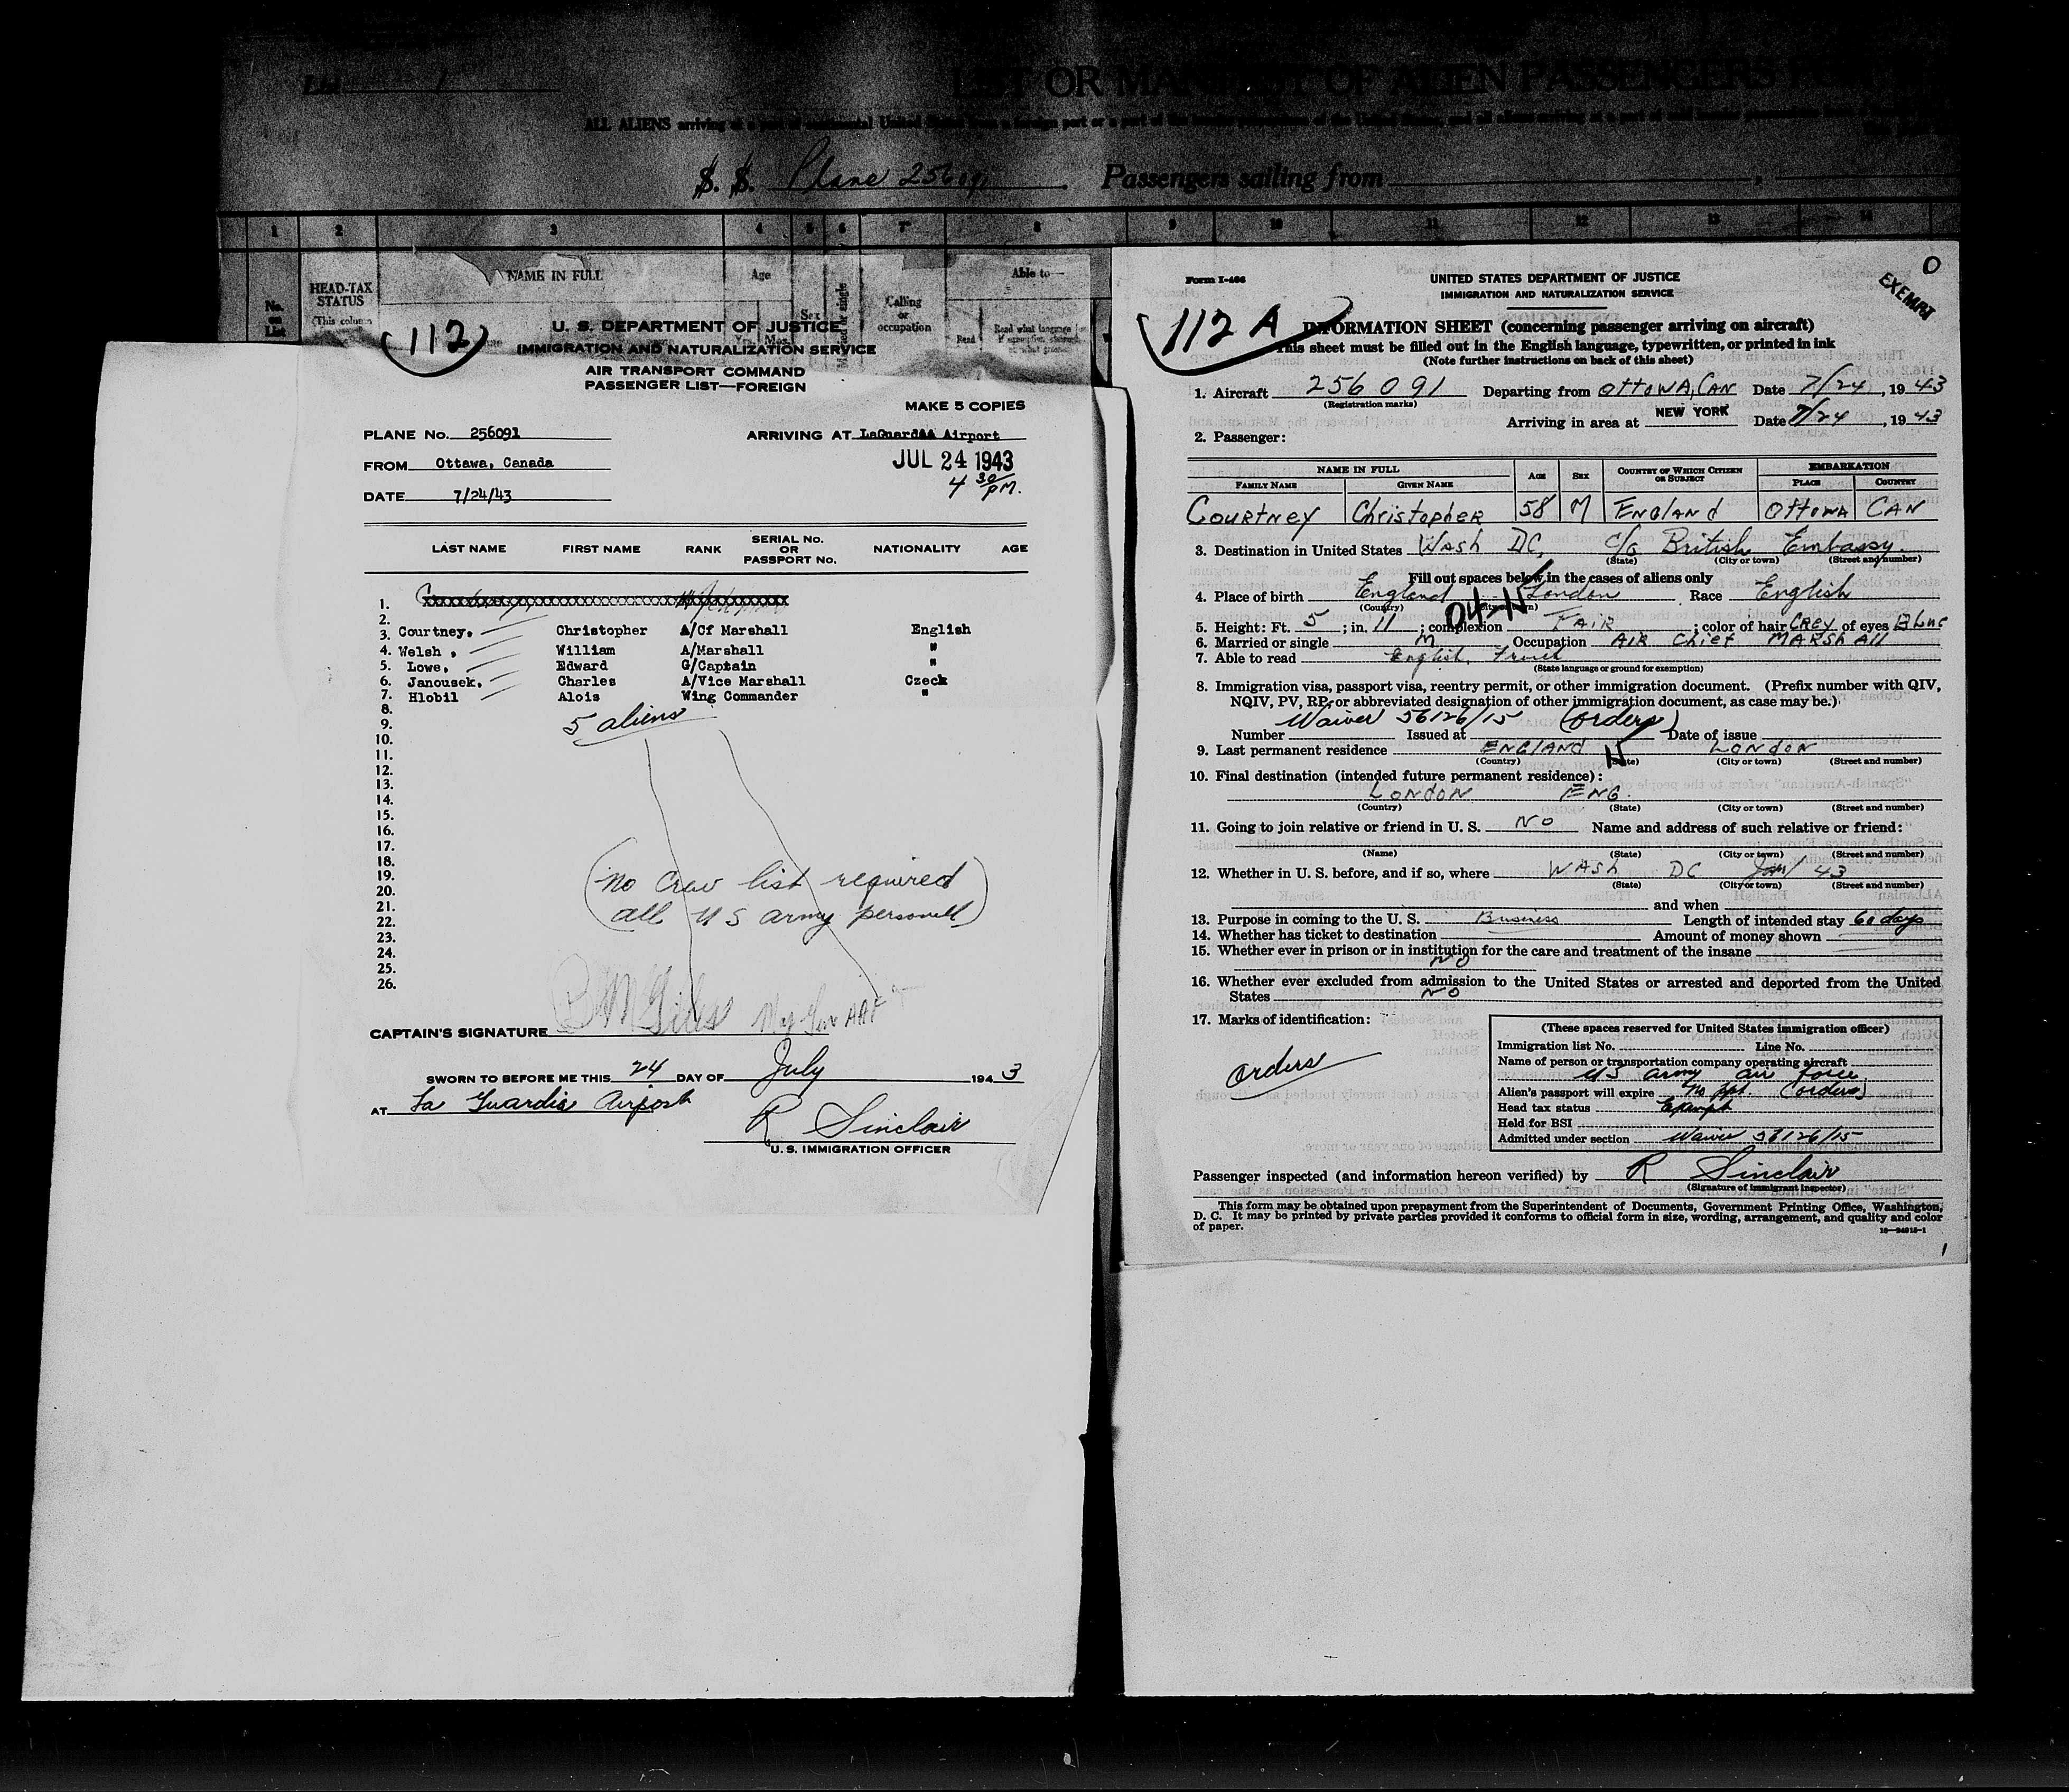 List 1
LIST OR MANIFEST OF ALIEN PASSENGERS
ALL ALIENS arriving at a port of continental United States from a foreign port or a port of the
S. S. Plane 256091 Passengers sailing from
1 2 3 4 5 6 7 8 9 10 11 12 13 14
No. on List
HEAD-TAX STATUS
(This column
NAME IN FULL
Age
Yrs. Mos.
Sex
Married or single
Calling or occupation
Able to—
Read
Read what language
(112)
U. S. DEPARTMENT OF JUSTICE
IMMIGRATION AND NATURALIZATION SERVICE
AIR TRANSPORT COMMAND
PASSENGER LIST—FOREIGN
MAKE 5 COPIES
PLANE No. 256091 ARRIVING AT LaGuardAA Airport
FROM Ottawa, Canada JUL 24 1943
4 30 PM.
DATE 7/24/43
LAST NAME FIRST NAME RANK SERIAL No. OR PASSPORT No. NATIONALITY AGE
1.
2.
3. Courtney, Christopher A/Cf Marshall English
4. Welsh , William A/Marshall "
5. Lowe, Edward G/Captain "
6. Janousek, Charles A/Vice Marshall Czeck
7. Hlobil Alois Wing Commander "
8.
9. 5 aliens
10.
11.
12.
13.
14.
15.
16.
17.
18.
19. (no crew list required
20.
21. all U S army personell)
22.
23.
24.
25.
26.
CAPTAIN'S SIGNATURE B M Giles Maj Gen AAF
SWORN TO BEFORE ME THIS 24 DAY OF July 1943
AT La Guardia Airport
R Sinclair
U. S. IMMIGRATION OFFICER
O
EXEMPT
Form I-466
UNITED STATES DEPARTMENT OF JUSTICE
IMMIGRATION AND NATURALIZATION SERVICE
112 A
INFORMATION SHEET (concerning passenger arriving on aircraft)
This sheet must be filled out in the English language, typewritten, or printed in ink
(Note further instructions on back of this sheet)
1. Aircraft 256091 Departing from OttOWA, CAN Date 7/24, 1943
(Registration marks)
Arriving in area at NEW YORK Date 7/24, 1943
2. Passenger:
NAME IN FULL AGE SEX COUNTRY OF WHICH CITIZEN OR SUBJECT EMBARKATION
FAMILY NAME GIVEN NAME PLACE COUNTRY
COURTNEY Christopher 58 M ENGlANd OttOWA CAN
3. Destination in United States Wash DC, c/o British Embassy.
(State) (City or town) (Street and number)
Fill out spaces below in the cases of aliens only
4. Place of birth England London Race English
(Country) (City or town)
04-N
5. Height: Ft. 5; in. 11; complexion FAIR; color of hair GREY of eyes Blue
6. Married or single M Occupation AIR Chief MARShAll
7. Able to read English, French
(State language or ground for exemption)
8. Immigration visa, passport visa, reentry permit, or other immigration document. (Prefix number with QIV,
NQIV, PV, RP, or abbreviated designation of other immigration document, as case may be.)
Waiver 56126/15 (orders)
Number Issued at Date of issue
9. Last permanent residence ENGlANd LONdON
(Country) (State) (City or town) (Street and number)
10. Final destination (intended future permanent residence):
LONdON ENG.
(Country) (State) (City or town) (Street and number)
11. Going to join relative or friend in U. S. NO Name and address of such relative or friend:
(Name) (State) (City or town) (Street and number)
12. Whether in U. S. before, and if so, where WASh DC Jan/43
(State) (City or town) (Street and number)
and when
13. Purpose in coming to the U. S. Business Length of intended stay 60 days
14. Whether has ticket to destination Amount of money shown
15. Whether ever in prison or in institution for the care and treatment of the insane
NO
16. Whether ever excluded from admission to the United States or arrested and deported from the United
States NO
17. Marks of identification:
orders
(These spaces reserved for United States immigration officer)
Immigration list No. Line No.
Name of person or transportation company operating aircraft
US army air force
Alien's passport will expire No ppt. (orders)
Head tax status Exempt
Held for BSI
Admitted under section Waiver 56126/15
Passenger inspected (and information hereon verified) by R Sinclair
(Signature of immigrant inspector)
This form may be obtained upon prepayment from the Superintendent of Documents, Government Printing Office, Washington,
D. C. It may be printed by private parties provided it conforms to official form in size, wording, arrangement, and quality and color
of paper.
16—24915-1
1